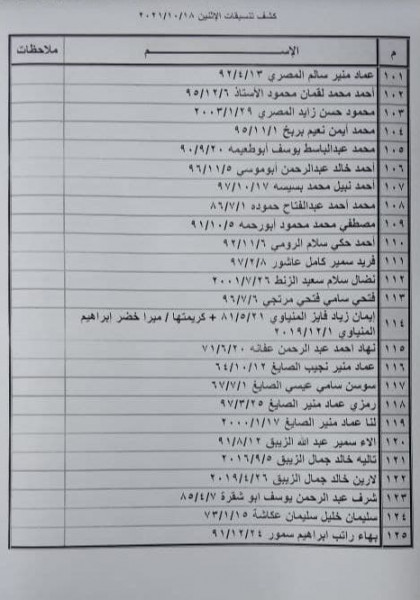 كشف تنسيقات الإثنين ٢٠٢١/١٠/١٨
م الإســـم ملاحظات
١٠١ عماد منير سالم المصري ٩٢/٤/١٣
١٠٢ أحمد محمد لقمان محمود الأستاذ ٩٥/١٢/٦
١٠٣ محمود حسن زايد المصري ٢٠٠٣/١/٢٩
١٠٤ محمد أيمن نعيم بربخ ٩٥/١١/١
١٠٥ محمد عبدالباسط يوسف أبوطعيمه ٩٠/٩/٢٠
١٠٦ أحمد خالد عبدالرحمن أبوموسي ٩٦/١١/٥
١٠٧ أحمد نبيل محمد بسيسه ٩٧/١٠/١٧
١٠٨ محمد أحمد عبدالفتاح حموده ٨٦/٧/١
١٠٩ مصطفي محمد محمود أبورحمه ٩١/١٠/٥
١١٠ أحمد حكي سلام الرومي ٩٢/١١/٦
١١١ فريد سمير كامل عاشور ٩٧/٢/٨
١١٢ نضال سلام سعيد الزنط ٢٠٠١/٧/٢٦
١١٣ فتحي سامي فتحي مرتجي ٩٦/٧/٦
١١٤ إيمان زياد فايز المنياوي ٨١/٥/٢١ + كريمتها / ميرا خضر إبراهيم
المنياوي ٢٠١٩/١٢/١
١١٥ نهاد احمد عبد الرحمن عفانه ٧١/٦/٢٠
١١٦ عماد منير نجيب الصايغ ٦٤/١٠/١٢
١١٧ سوسن سامي عيسي الصايغ ٦٧/٧/١
١١٨ رمزي عماد منير الصايغ ٩٧/٣/٢٥
١١٩ لنا عماد منير الصايغ ٢٠٠٠/١/١٧
١٢٠ الاء سمير عبد الله الزيبق ٩١/٨/١٢
١٢١ تاليه خالد جمال الزيبق ٢٠١٦/٩/٥
١٢٢ لارين خالد جمال الزيبق ٢٠١٩/٤/٢٦
١٢٣ شرف عبد الرحمن يوسف ابو شقرة ٨٥/٤/٧
١٢٤ سليمان خليل سليمان عكاشة ٧٣/١/١٥
١٢٥ بهاء راتب ابراهيم سمور ٩١/١٢/٢٤